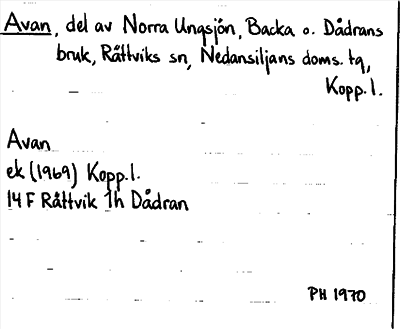 Avan, del av Norra Ungsjön, Backa o. Dådrans
bruk, Råttviks sn, Nedansiljans doms. tg,
Kopp. l.
Avan
ek (1969) Kopp. l.
14 F Råttvik 1h Dådran
PH 1970